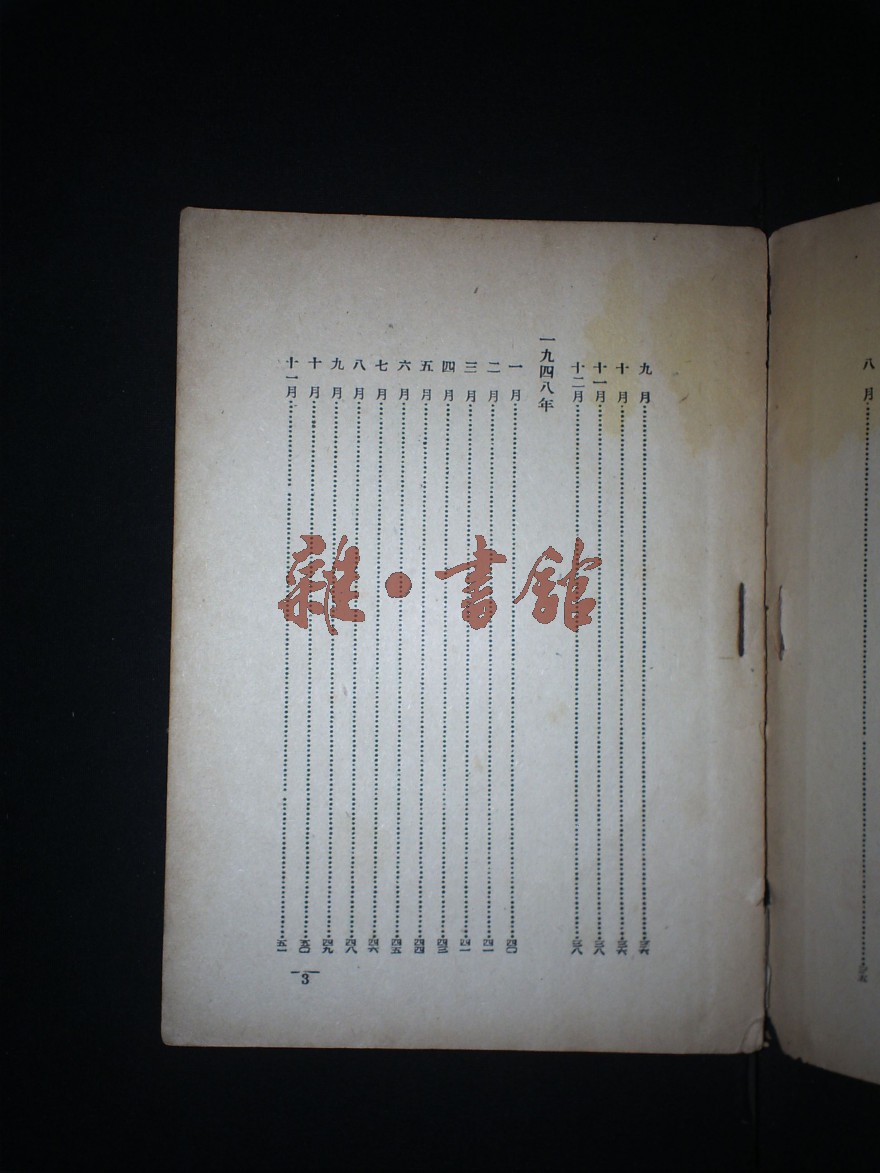 八月……三五
九月……三六
十月……三六
十一月……三八
十二月……三八
一九四八年
一月……四〇
二月……四一
三月……四一
四月……四三
五月……四四
六月……四五
七月……四六
八月……四八
九月……四九
十月……五〇
十一月……五一
3
雜·書館